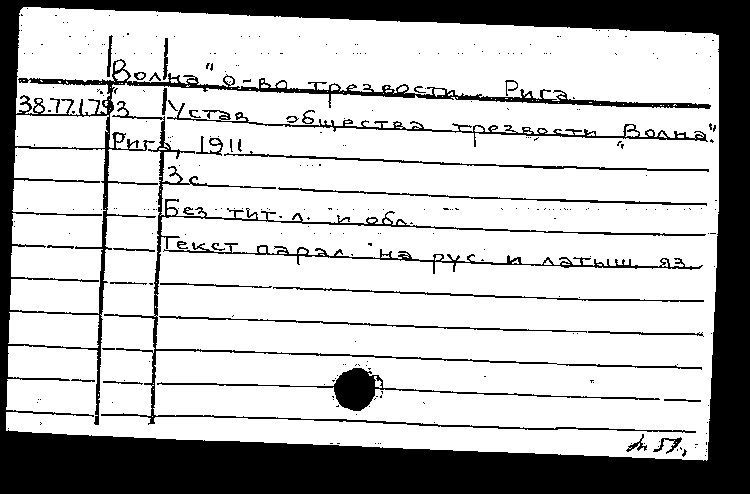 "Волна", о-во трезвости. Рига.
38.77.1.793 Устав общества трезвости "Волна".
Рига, 1911.
3 с.
Без тит. л. и обл.
Текст парал. на рус. и латыш. яз.